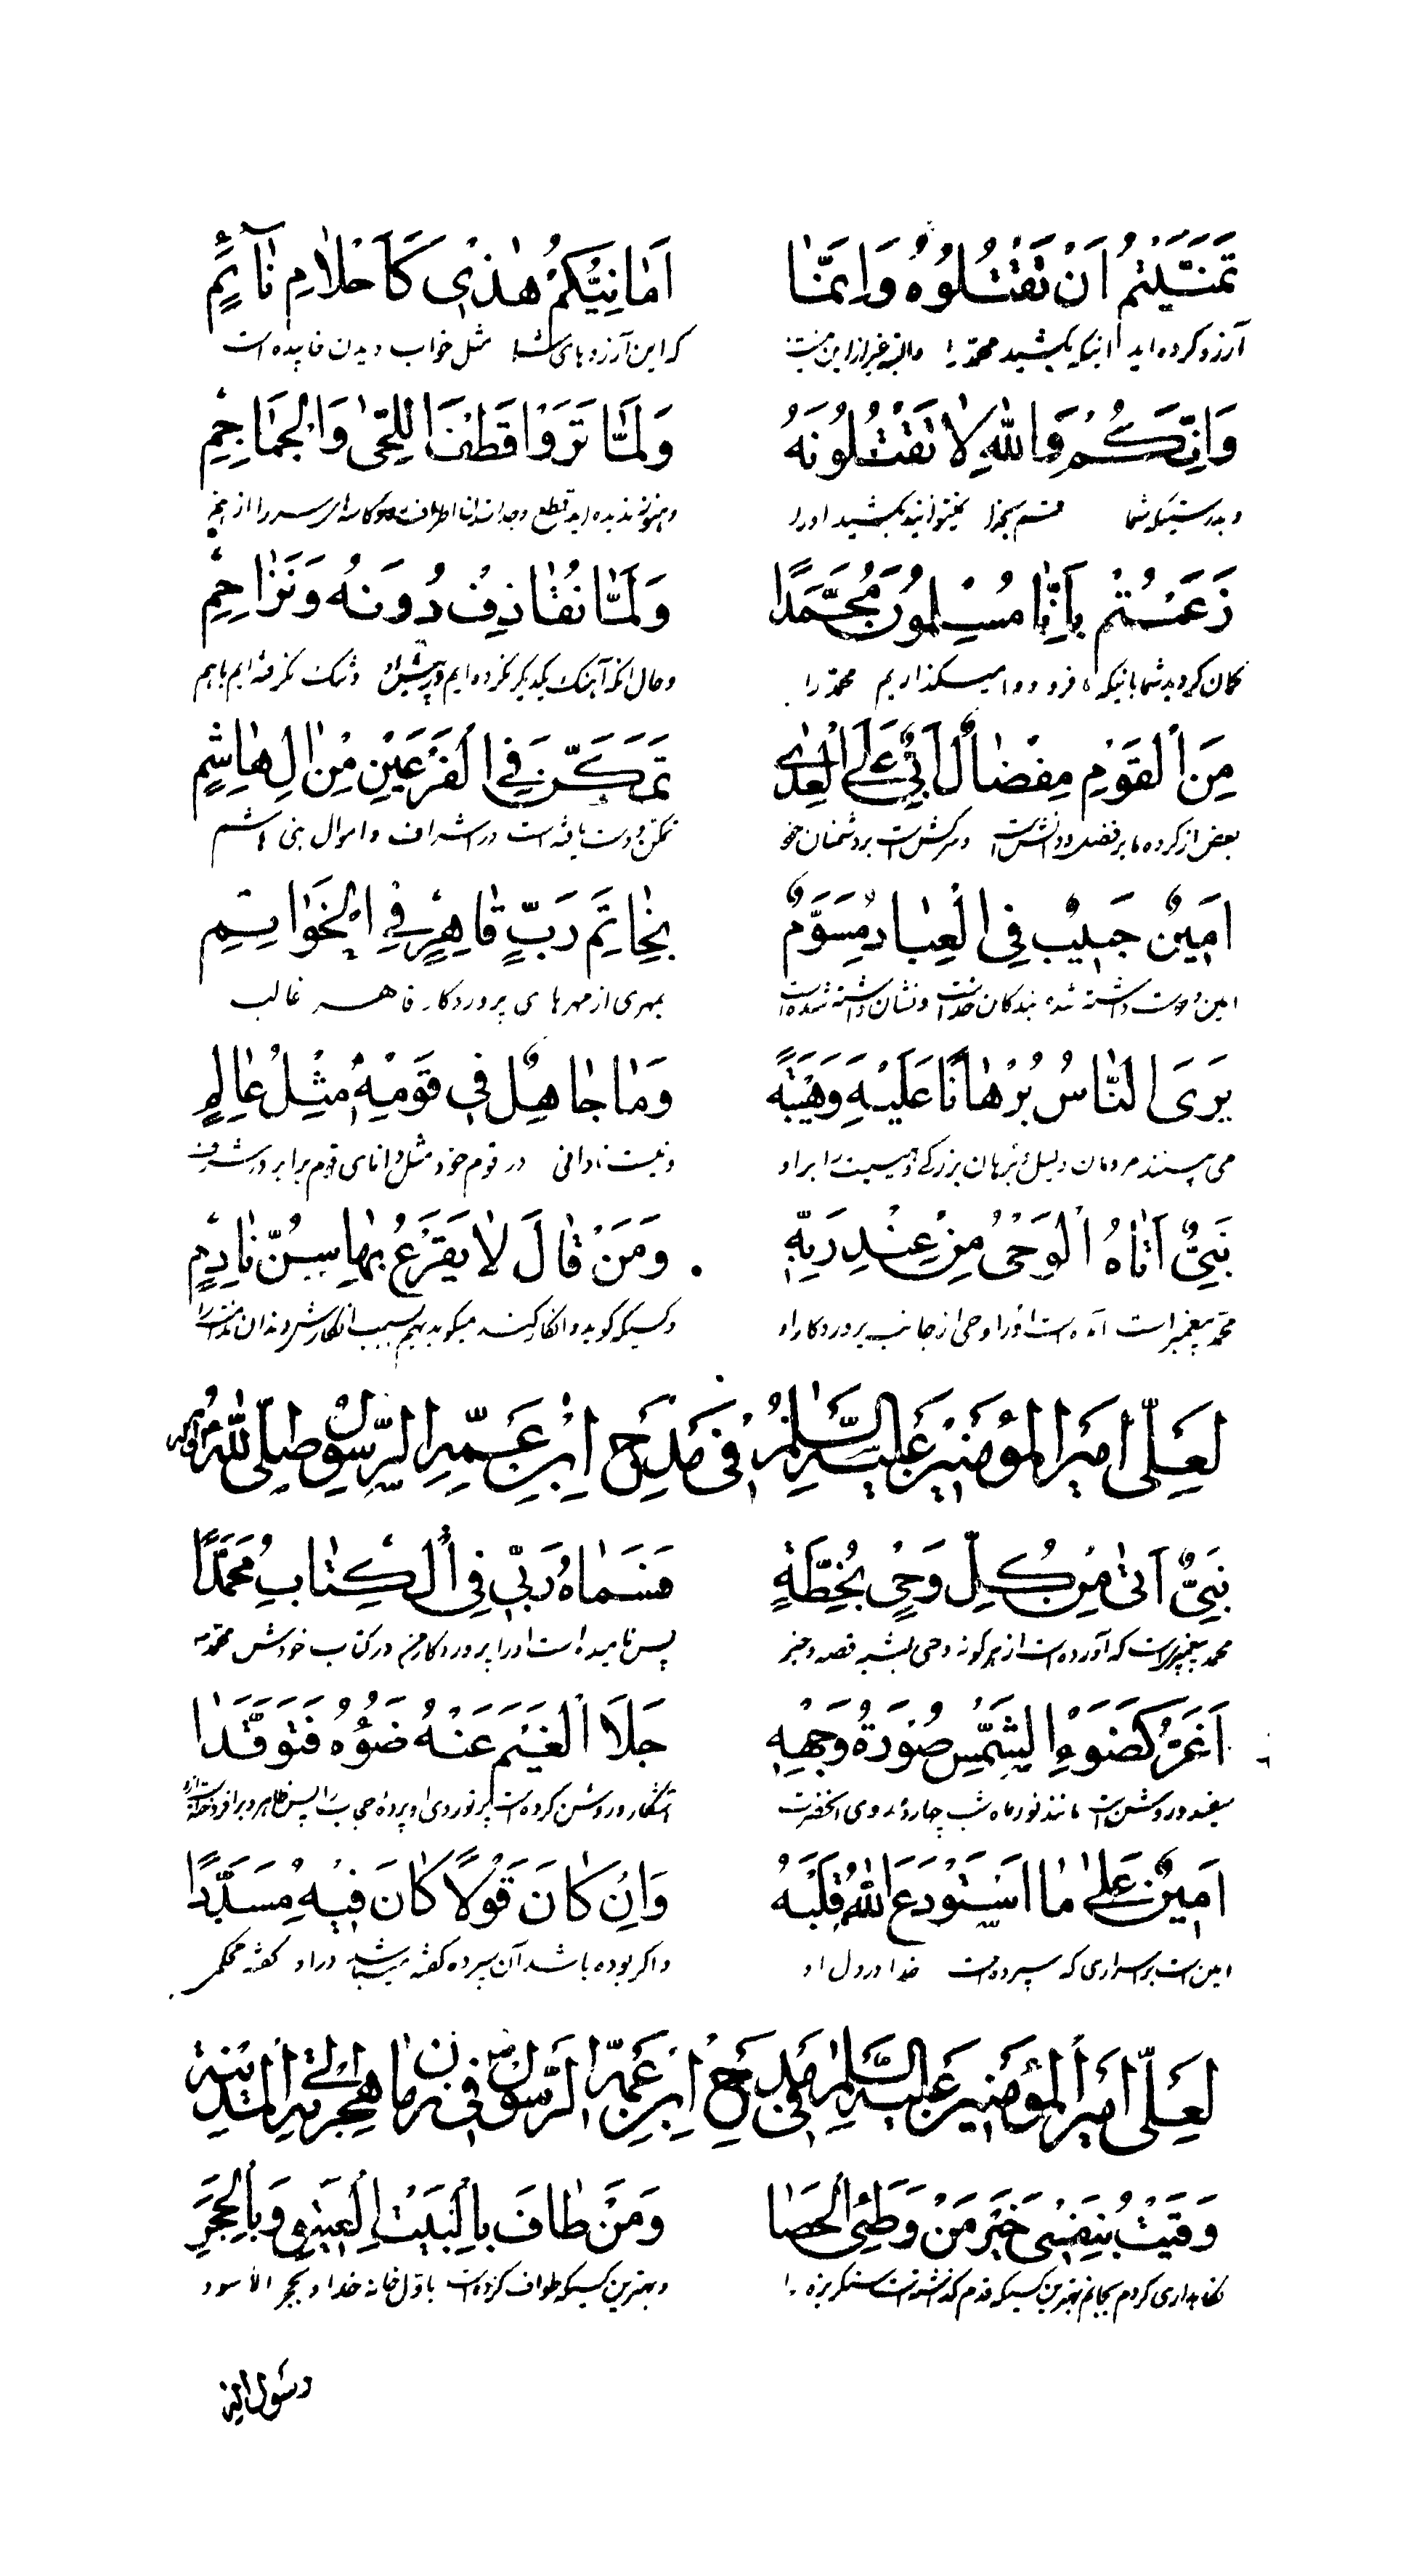 تَمَنَّيْتُمُ اَنْ تَقْتُلُوُهُ وَاِنَّمٰا اَمٰانِيُّكُمْ هٰذٖى كَاَحْلٰامِ نٰآئِمٍ
آرزو کرده اید اینکه بکشید محمّد را که این آرزوهای شما مثل خواب دیدن خابیده است
وَاِنَّكُمْ وَاللهِ لٰا تَقْتُلُونَهُ وَلَمّٰا تَرَوْا قَطْفَ اللِّحٰى وَالْجَمٰاجِمِ
و بدرستیکه شما قسم بخدا نمیتوانید بکشید او را و هنوز ندیده اید قطع
زَعَمْتُمْ بِاَنّٰا مُسْلِمُونَ مُحَمَّدًا وَلَمّٰا نُقٰاذِفْ دُونَهُ وَنَزٰاحِمِ
کمان کردید شما باینکه ما فرود میکذاریم محمّد را و حال انکه آهنک یکدیکر نکرده ایم و تنک نکرفته ایم باهم
مِنَ الْقَوْمِ مِفْضٰالٌ اَبِيٌّ عَلَى الْعِدٰى تَمَكَّنَ فِي الْفَرْعَيْنِ مِنْ اٰلِ هٰاشِمٍ
بعض از کروه ما و سرکش است بر دشمنان خود در اشراف و اموال بنی هاشم
اَمٖينٌ حَبٖيبٌ فِى الْعِبٰادِ مُسَوَّمٌ بِخٰاتَمِ رَبٍّ قٰاهِرٍ فِي الْخَوٰاتِمِ
امین و دوست داشته شده بندکان خداست و نشان داشته شده است بمهری از مهرهای پروردکار قاهر غالب
يَرَى النّٰاسُ بُرْهٰانًا عَلَيْهِ وَهَيْبَةً وَمٰا جٰاهِلٌ فٖي قَوْمِهٖ مِثْلُ عٰالِمٍ
می بینند مردمان دلیل و برهان بزرکی و هیبت را بر او و نیست نادانی در قوم خود مثل دانای قوم برابر در شرف
نَبِيٌّ اَتٰاهُ الْوَحْىُ مِنْ عِنْدِ رَبِّهٖ وَمَنْ قٰالَ لٰا يَقْرَعْ بِهٰا سِنَّ نٰادِمٍ
محمّد پیغمبر است آمده است او را وحی از جانب پروردکار او و کسیکه کوید و انکار کند
لِعَلِيٍّ اَمٖيرِ الْمُؤْمِنٖينَ عَلَيْهِ السَّلٰامُ فٖى مَدْحِ ابْنِ عَمِّهِ الرَّسُولِ صَلَّى اللهُ
نَبِيٌّ اَتٰى مِنْ كُلِّ وَحْىٍ بِخُطَّةٍ فَسَمّٰاهُ رَبّٖى فِى الْكِتٰابِ مُحَمَّدًا
محمد پیغمبریست که آورده است از هر کونه وحی قصه و خبر پس نامیده است او را پروردکارم در کتاب خودش محمّد
اَغَرُّ كَضَوْءِ الشَّمْسِ صُورَةُ وَجْهِهٖ جَلَا الْغَيْمَ عَنْهُ ضَوْؤُهُ فَتَوَقَّدٰا
سفید و روشن است مانند نور ماه شب چهارده روی انحضرت آشکار و روشن کرده است
اَمٖينٌ عَلىٰ مٰا اسْتَوْدَعَ اللهُ قَلْبَهُ وَاِنْ كٰانَ قَوْلًا كٰانَ فٖيهِ مُسَدَّدًا
امین است بر اسراری که سپرده است خدا در دل او و اکر بوده باشد آن سپرده کفته میباشد در او کفته محکم
لِعَلِيٍّ اَمٖيرِ الْمُؤْمِنٖينَ عَلَيْهِ السَّلٰامُ فٖى مَدْحِ ابْنِ عَمِّهِ الرَّسُولِ فٖى زَمٰانِ هِجْرَتِهٖ اِلَى الْمَدٖينَةِ
وَقَيْتُ بِنَفْسٖى خَيْرَ مَنْ وَطِئَ الْحَصٰا وَمَنْ طٰافَ بِالْبَيْتِ الْعَتٖيقِ وَبِالْحِجْرِ
نکاهداری کردم بجانم بهترین کسیکه قدم کذاشته است سنکریزه را و بهترین کسیکه طواف کرده است باول خانه خدا و بحجر الاسود
رسول اله